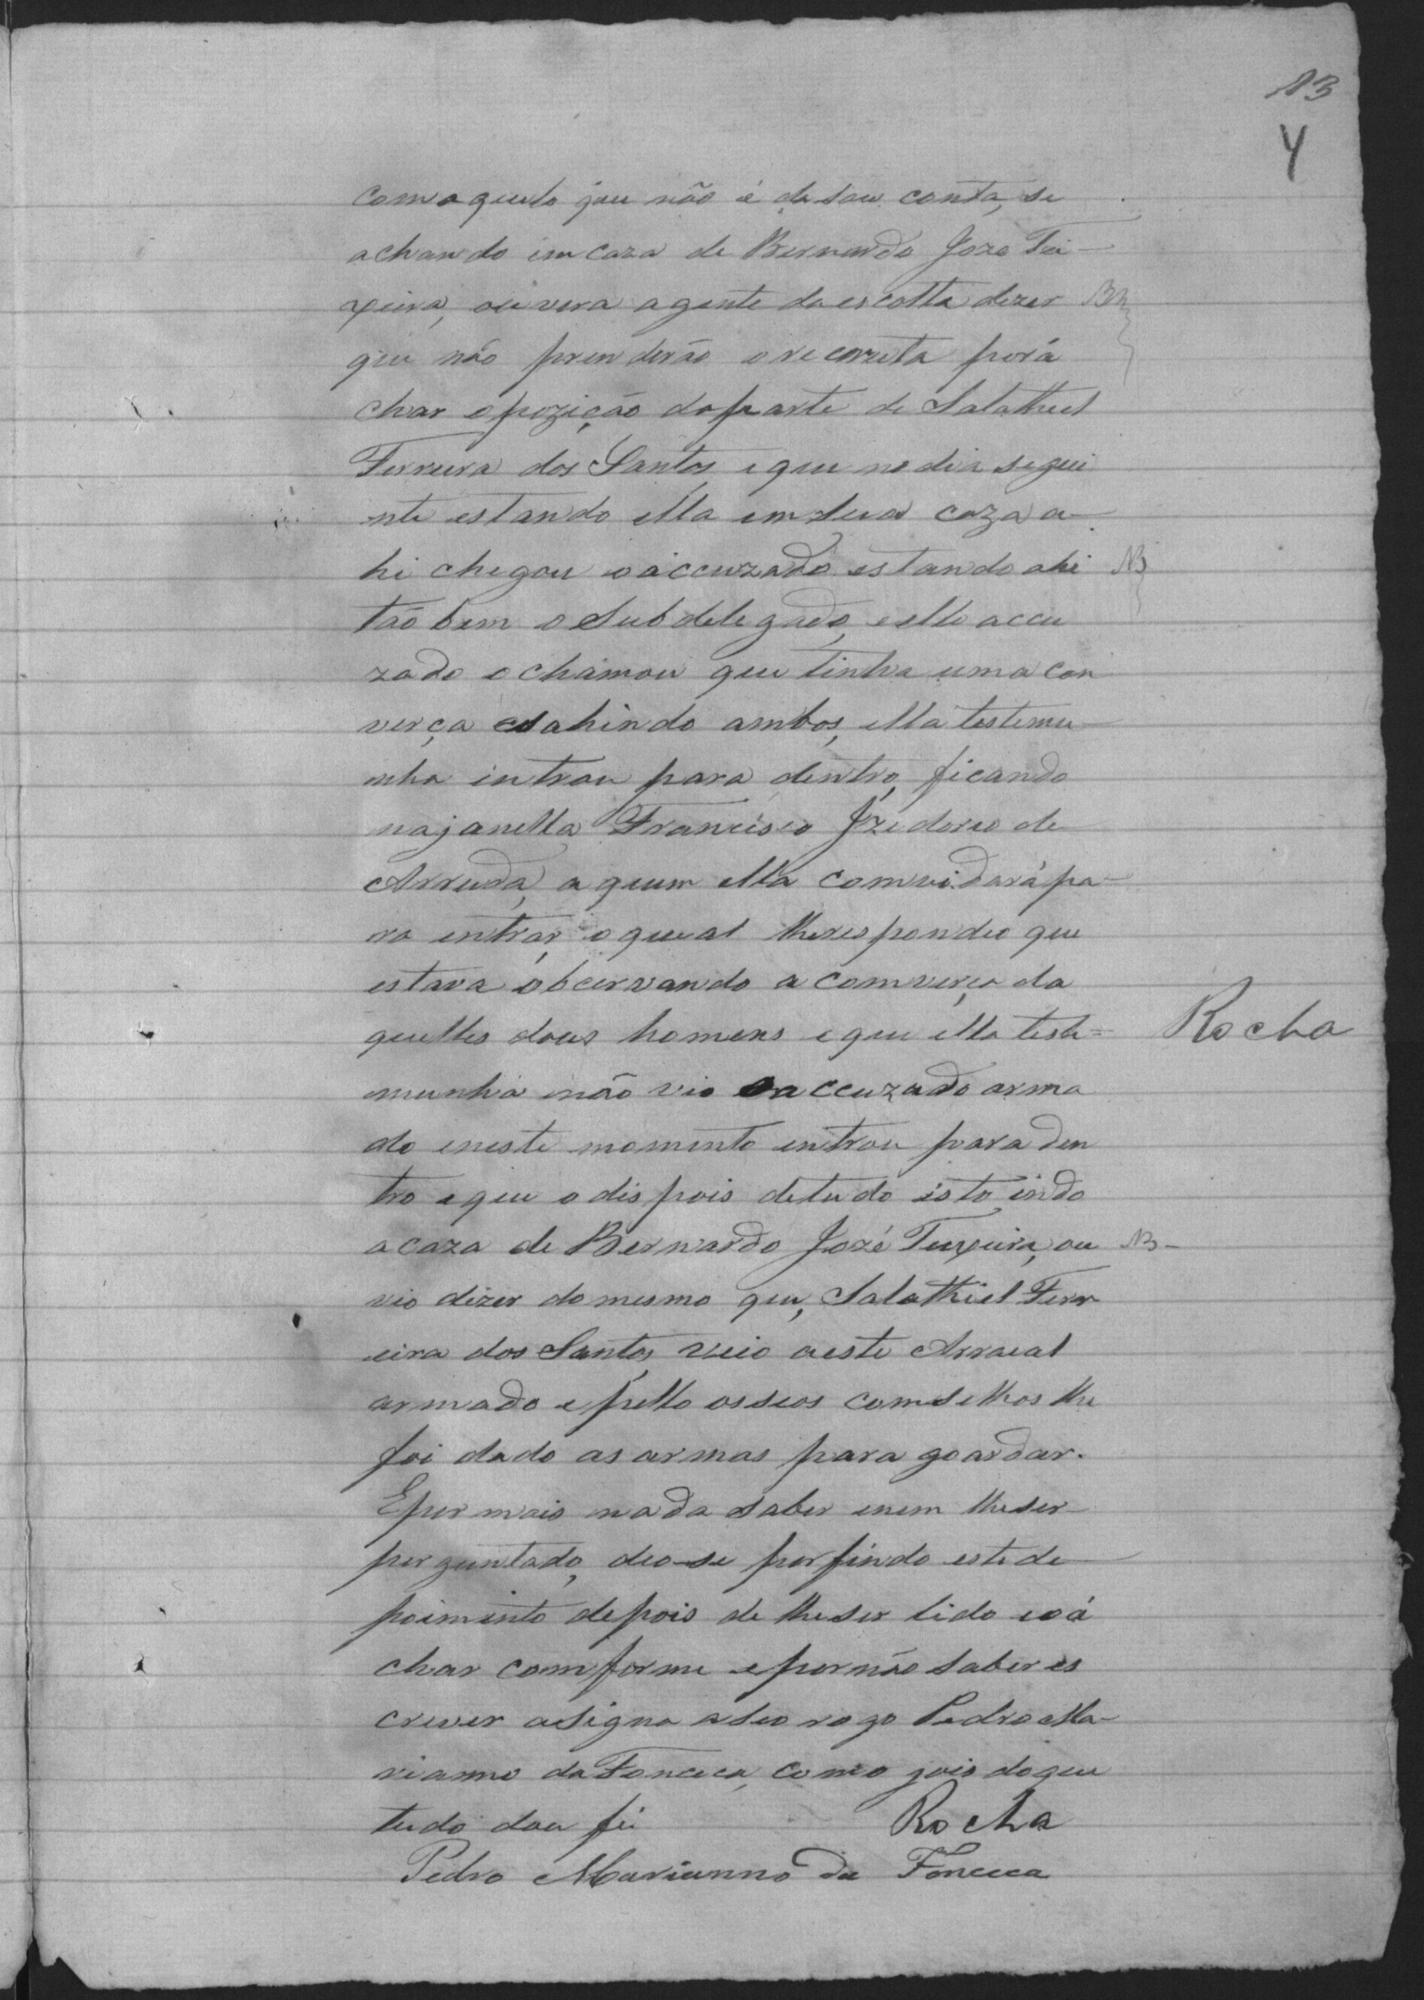 13
4
com aquelo que não é da sou conta, se
achando im caza de Bernardo Joze Tei-
xeira, ouvera agente da escolta dezer
que não prenderão o recruta porá
char opozição da parte de Salathiel
Ferreira dos Santos, e que no dia segui
nte estando ella em sua caza a-
hi chegou o accuzado estando ahi
tão bem o Subdelegado, e elle accu
zado o chamou que tinha uma con
verça e sahindo ambos, ella testemu-
nha introu para dentro, ficando
na janella Francisco Izedoreo de
Arruda, a quem ella comvidará pa-
ra entrar, o qual lhe respondeo que
estava obcervando a comverça da
quelles dous homens e que ella teste=
munha não vio o accuzado arma
do e neste momento entrou para den
tro e que o dispois de tudo isto indo
a caza de Bernardo José Teixeira, ou
vio dizer do mesmo que, Salathiel Ferr
eira dos Santos, veio a este Arraial
armado e pello os seos comselhos lhe
foi dado as armas para goardar.
E por mais nada saber e nem lhe ser
perguntado, deo-se por findo este de
poimento depois de lhe ser lido e o á
char comforme e por não saber es
crever asigna a seo rogo Pedro Ma-
rianno da Fonceca, com o jois do que
tudo dou fé
Rocha
Pedro Marianno da Fonceca
Rocha